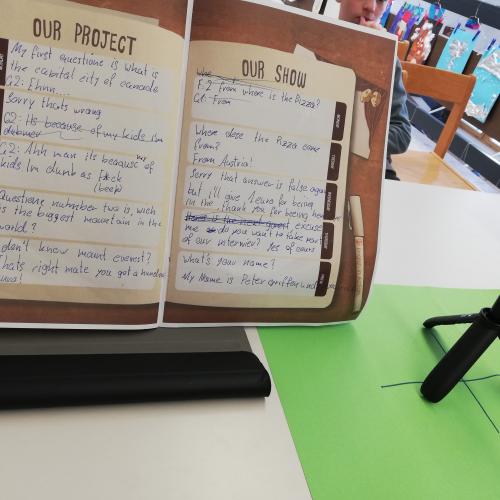 OUR PROJECT
My first questione is what is
the capital city of canada
G2: Ehmm...
Sorry thats wrong
G2: its because of my kids im
G2: Ahh man its because of
kids im dumb as f*ck
(beep)
Questions number two is, wich
is the biggest mountain in the
world?
don't know mount everest?
Thats right mate you got a hundred
OUR SHOW
F.2 from where is the Pizza?
G1: From
Where does the Pizza come
from?
From Austria!
Sorry that answer is false again
but i'll give 1 euro for being
in the Thank you for being here
excuse
me do you want to take part
of our interwier? Yes of cours
what's your name?
My Name is Peter griffen und